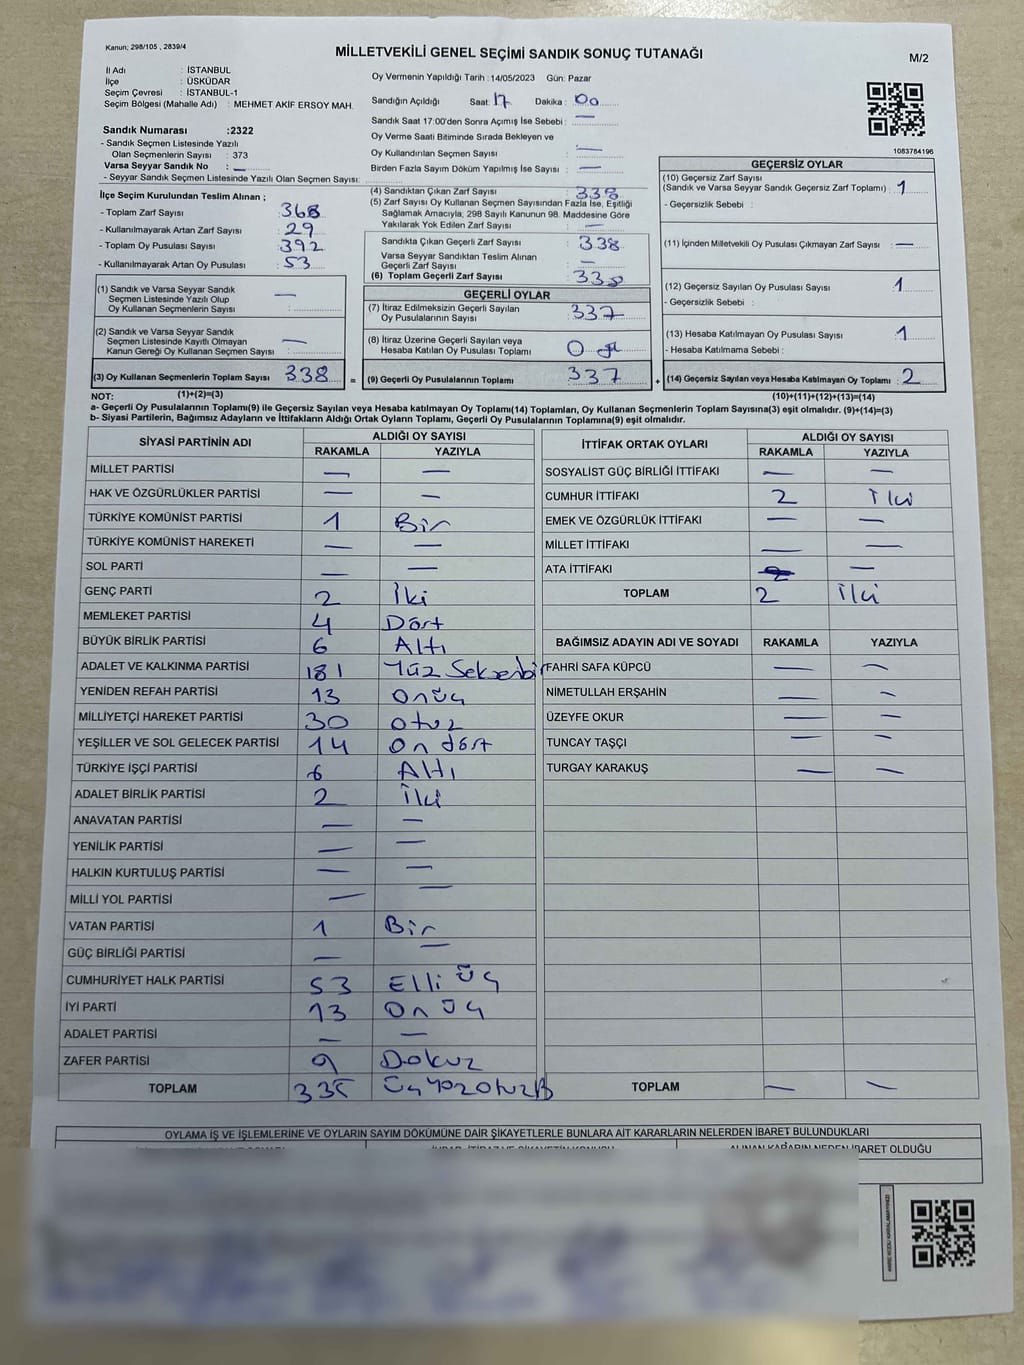 Kanun; 298/105 , 2839/4
MİLLETVEKİLİ GENEL SEÇİMİ SANDIK SONUÇ TUTANAĞI
M/2
İl Adı : İSTANBUL
İlçe : ÜSKÜDAR
Seçim Çevresi : İSTANBUL-1
Seçim Bölgesi (Mahalle Adı) : MEHMET AKİF ERSOY MAH.
Sandık Numarası :2322
- Sandık Seçmen Listesinde Yazılı
Olan Seçmenlerin Sayısı : 373
Varsa Seyyar Sandık No : —
- Seyyar Sandık Seçmen Listesinde Yazılı Olan Seçmen Sayısı:
Oy Vermenin Yapıldığı Tarih : 14/05/2023 Gün: Pazar
Sandığın Açıldığı Saat: 17 Dakika : 00
Sandık Saat 17:00'den Sonra Açımış İse Sebebi : —
Oy Verme Saati Bitiminde Sırada Bekleyen ve
Oy Kullandırılan Seçmen Sayısı : —
Birden Fazla Sayım Döküm Yapılmış İse Sayısı : —
1083784196
İlçe Seçim Kurulundan Teslim Alınan ;
- Toplam Zarf Sayısı : 368
- Kullanılmayarak Artan Zarf Sayısı : 29
- Toplam Oy Pusulası Sayısı : 392
- Kullanılmayarak Artan Oy Pusulası : 53
(1) Sandık ve Varsa Seyyar Sandık
Seçmen Listesinde Yazılı Olup
Oy Kullanan Seçmenlerin Sayısı : —
(2) Sandık ve Varsa Seyyar Sandık
Seçmen Listesinde Kayıtlı Olmayan
Kanun Gereği Oy Kullanan Seçmen Sayısı : —
(3) Oy Kullanan Seçmenlerin Toplam Sayısı : 338
(1)+(2)=(3)
(4) Sandıktan Çıkan Zarf Sayısı : 338
(5) Zarf Sayısı Oy Kullanan Seçmen Sayısından Fazla İse, Eşitliği
Sağlamak Amacıyla, 298 Sayılı Kanunun 98. Maddesine Göre
Yakılarak Yok Edilen Zarf Sayısı : —
Sandıkta Çıkan Geçerli Zarf Sayısı : 338
Varsa Seyyar Sandıktan Teslim Alınan
Geçerli Zarf Sayısı : —
(6) Toplam Geçerli Zarf Sayısı : 338
GEÇERLİ OYLAR
(7) İtiraz Edilmeksizin Geçerli Sayılan
Oy Pusulalarının Sayısı : 337
(8) İtiraz Üzerine Geçerli Sayılan veya
Hesaba Katılan Oy Pusulası Toplamı : 0
= (9) Geçerli Oy Pusulalarının Toplamı : 337
GEÇERSİZ OYLAR
(10) Geçersiz Zarf Sayısı
(Sandık ve Varsa Seyyar Sandık Geçersiz Zarf Toplamı) : 1
- Geçersizlik Sebebi :
(11) İçinden Milletvekili Oy Pusulası Çıkmayan Zarf Sayısı : —
(12) Geçersiz Sayılan Oy Pusulası Sayısı : 1
- Geçersizlik Sebebi :
(13) Hesaba Katılmayan Oy Pusulası Sayısı : 1
- Hesaba Katılmama Sebebi :
+ (14) Geçersiz Sayılan veya Hesaba Katılmayan Oy Toplamı : 2
(10)+(11)+(12)+(13)=(14)
NOT:
a- Geçerli Oy Pusulalarının Toplamı(9) ile Geçersiz Sayılan veya Hesaba katılmayan Oy Toplamı(14) Toplamları, Oy Kullanan Seçmenlerin Toplam Sayısına(3) eşit olmalıdır. (9)+(14)=(3)
b- Siyasi Partilerin, Bağımsız Adayların ve İttifakların Aldığı Ortak Oyların Toplamı, Geçerli Oy Pusulalarının Toplamına(9) eşit olmalıdır.
SİYASİ PARTİNİN ADI ALDIĞI OY SAYISI
RAKAMLA YAZIYLA
MİLLET PARTİSİ — —
HAK VE ÖZGÜRLÜKLER PARTİSİ — —
TÜRKİYE KOMÜNİST PARTİSİ 1 Bir
TÜRKİYE KOMÜNİST HAREKETİ — —
SOL PARTİ — —
GENÇ PARTİ 2 İki
MEMLEKET PARTİSİ 4 Dört
BÜYÜK BİRLİK PARTİSİ 6 Altı
ADALET VE KALKINMA PARTİSİ 181 Yüz Seksenbir
YENİDEN REFAH PARTİSİ 13 Onüç
MİLLİYETÇİ HAREKET PARTİSİ 30 otuz
YEŞİLLER VE SOL GELECEK PARTİSİ 14 On dört
TÜRKİYE İŞÇİ PARTİSİ 6 Altı
ADALET BİRLİK PARTİSİ 2 İki
ANAVATAN PARTİSİ — —
YENİLİK PARTİSİ — —
HALKIN KURTULUŞ PARTİSİ — —
MİLLİ YOL PARTİSİ — —
VATAN PARTİSİ 1 Bir
GÜÇ BİRLİĞİ PARTİSİ — —
CUMHURİYET HALK PARTİSİ 53 Elli üç
İYİ PARTİ 13 Onüç
ADALET PARTİSİ — —
ZAFER PARTİSİ 9 Dokuz
TOPLAM 335 ÜçYüzOtuzB
İTTİFAK ORTAK OYLARI ALDIĞI OY SAYISI
RAKAMLA YAZIYLA
SOSYALİST GÜÇ BİRLİĞİ İTTİFAKI — —
CUMHUR İTTİFAKI 2 İki
EMEK VE ÖZGÜRLÜK İTTİFAKI — —
MİLLET İTTİFAKI — —
ATA İTTİFAKI —
TOPLAM 2 İki
BAĞIMSIZ ADAYIN ADI VE SOYADI RAKAMLA YAZIYLA
FAHRİ SAFA KÜPCÜ — —
NİMETULLAH ERŞAHİN — —
ÜZEYFE OKUR — —
TUNCAY TAŞÇI — —
TURGAY KARAKUŞ — —
TOPLAM — —
OYLAMA İŞ VE İŞLEMLERİNE VE OYLARIN SAYIM DÖKÜMÜNE DAİR ŞİKAYETLERLE BUNLARA AİT KARARLARIN NELERDEN İBARET BULUNDUKLARI
ALINAN KARARIN NEDEN İBARET OLDUĞU